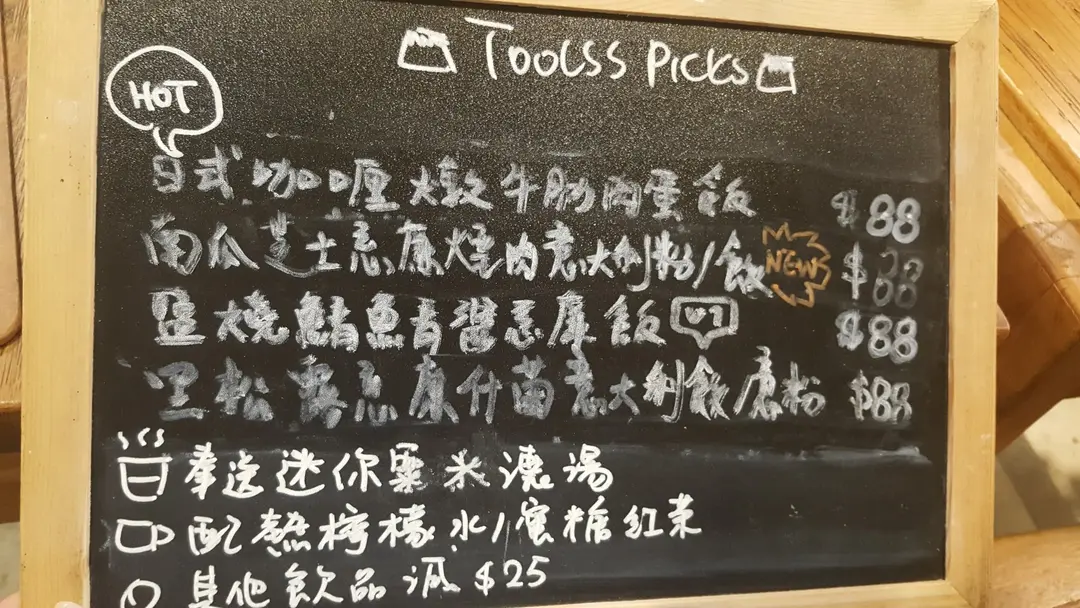 Toolss Picks
HOT
日式咖喱火燉牛肋肉蛋飯 $88
南瓜芝士急康燒肉意大利粉/飯 NEW $88
盐燒鯖魚青醬急康飯 $88
黑松露急康什菌意大利飯/康粉 $88
奉送迷你粟米濃湯
配熱檸檬水/蜜糖紅茶
其他飲品減 $25